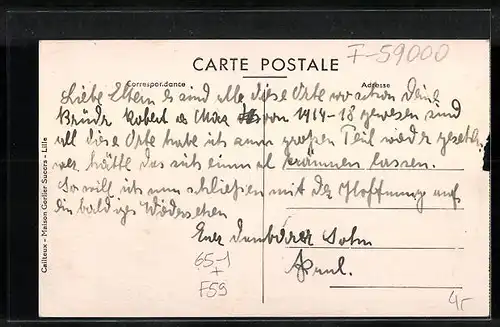 F-59000
CARTE POSTALE
Correspondance
Adresse
Liebe Eltern es sind alle diese Orte wo schon Deine
Brüder Robert u Max von 1914-18 gewesen sind
all diese Orte habe ich zum großen Teil wieder gesehen
wer hätte das sich einmal träumen lassen.
So will ich nun schließen mit der Hoffnung auf
ein baldiges Wiedersehen
Euer dankbarer Sohn
Paul.
65-1
+
F59
4,-
Cailteux - Maison Gerlier Succrs - Lille